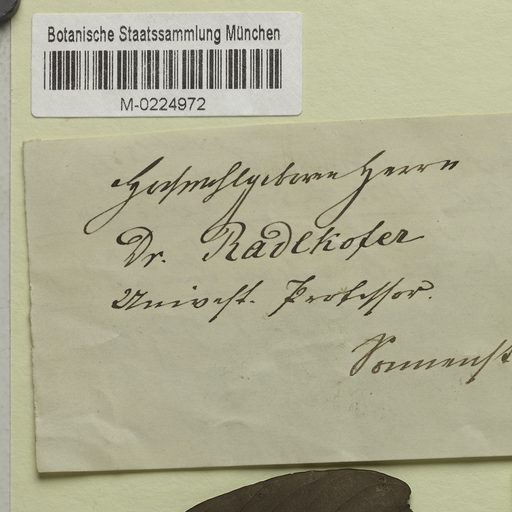 Botanische Staatssammlung München
M-0224972
Hochwohlgeboren Herrn
Dr. Radlkofer
Universt. Professor.
Sonnenst